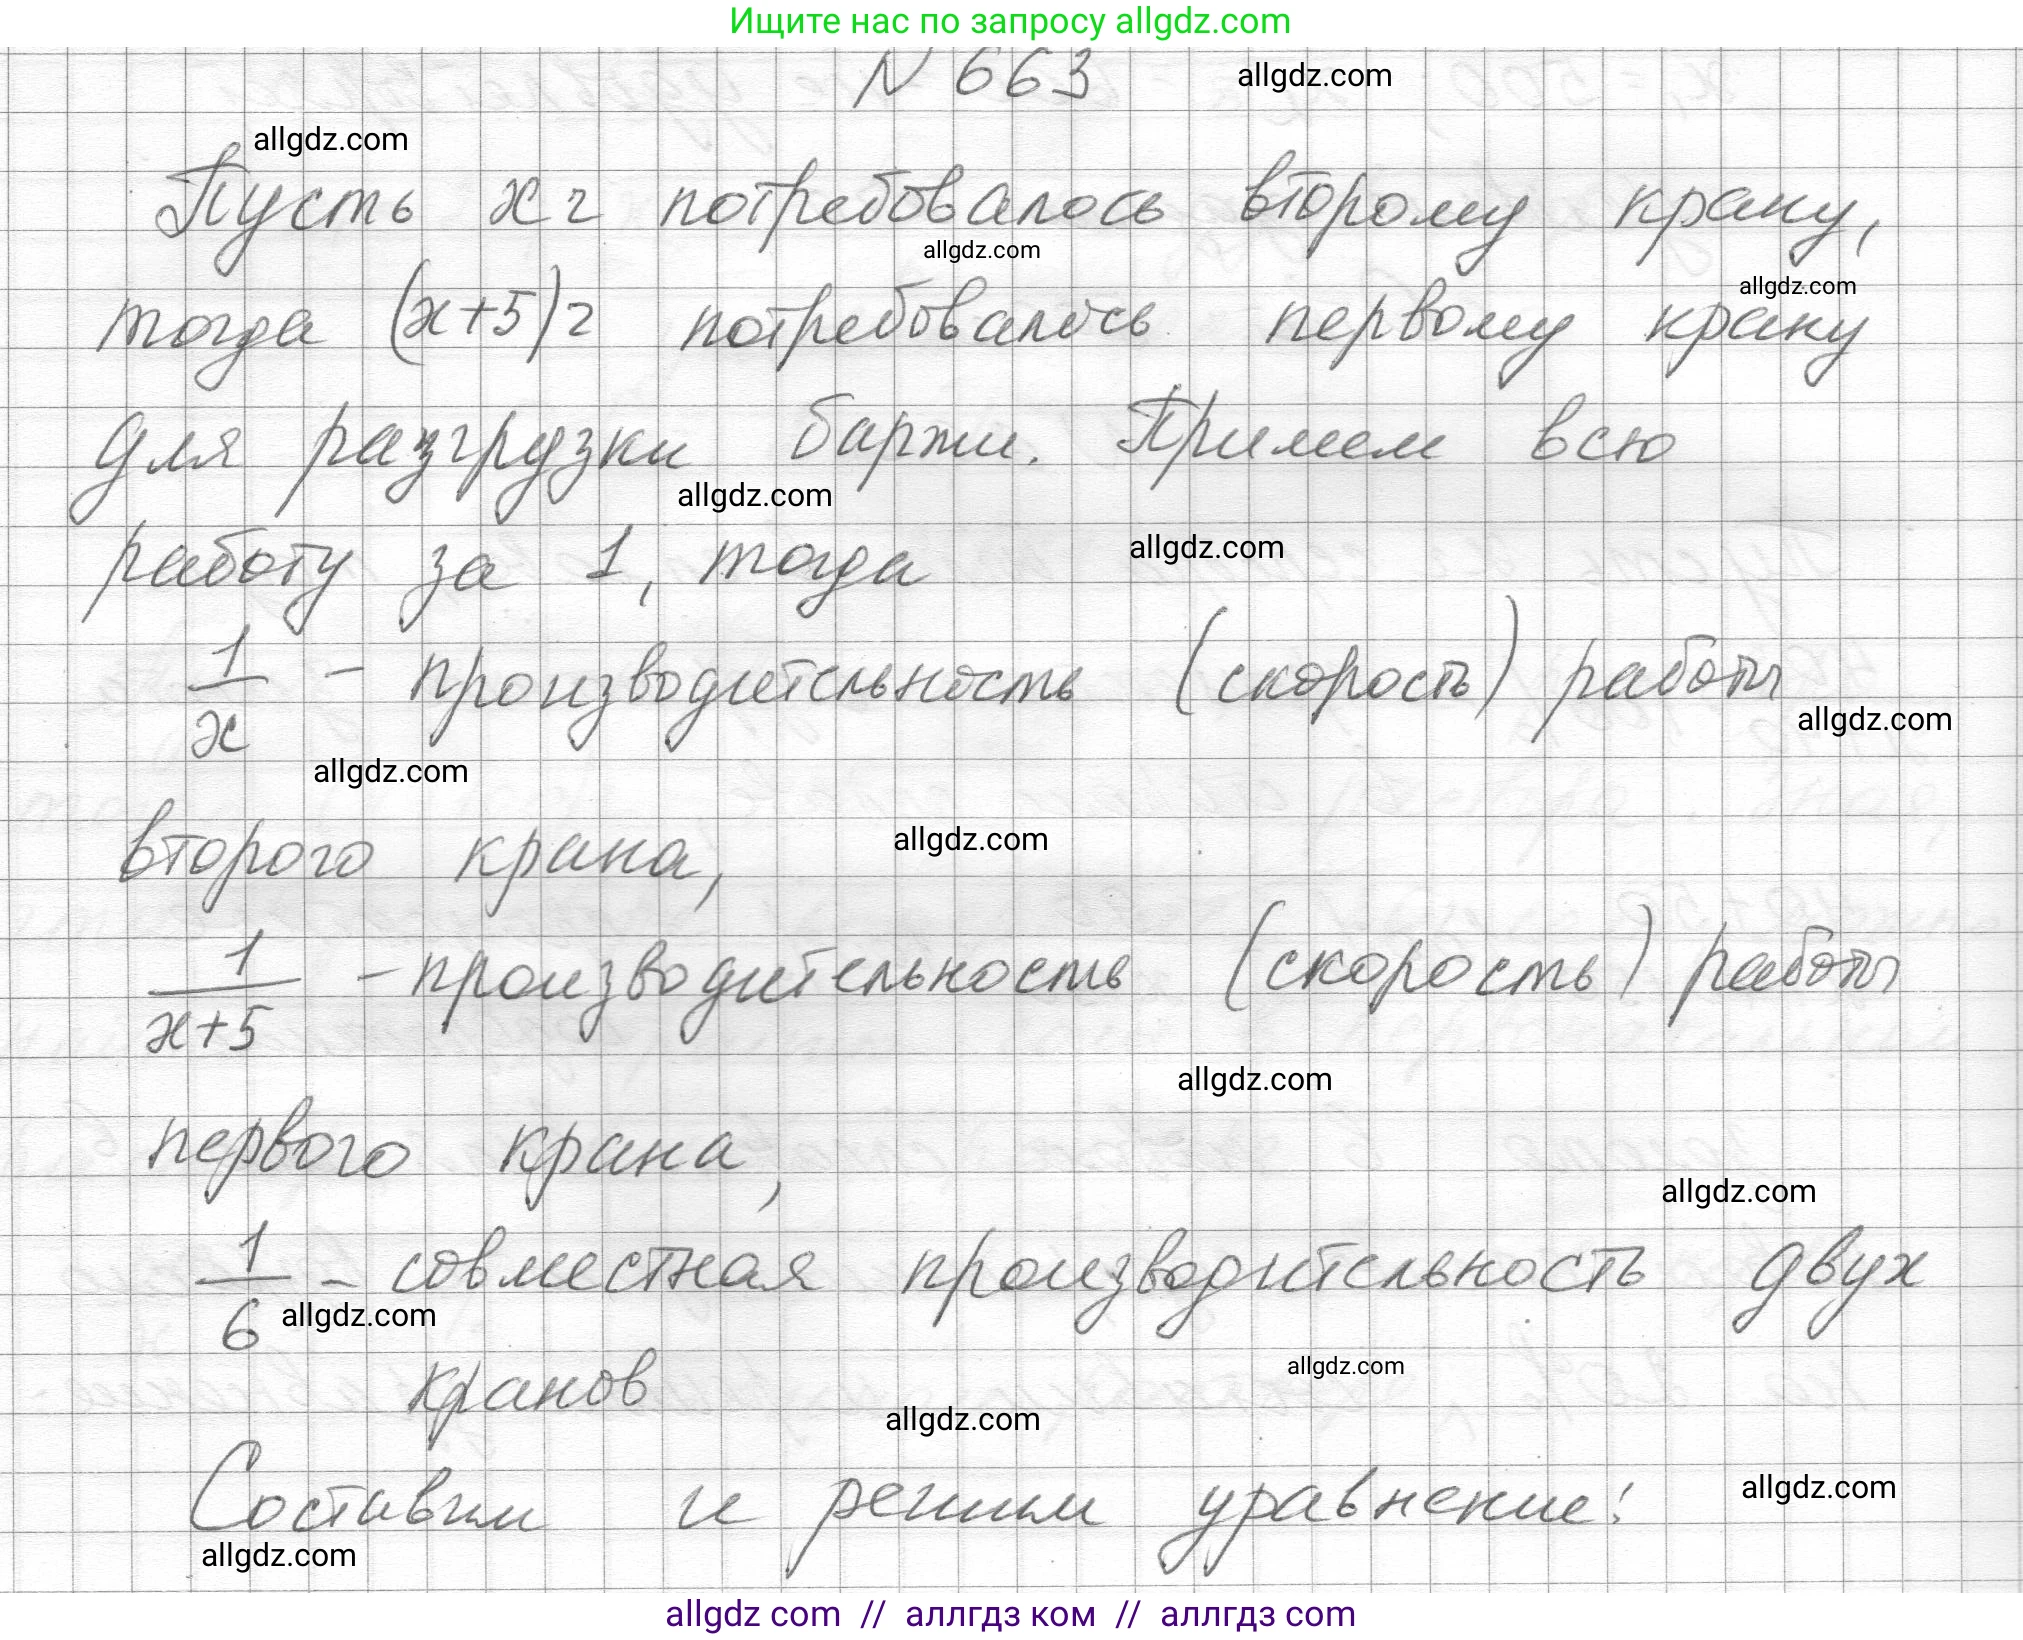 Ищите нас по запросу allgdz.com
N 663
allgdz.com
allgdz.com
Пусть x ч потребовалось второму крану,
allgdz.com
allgdz.com
тогда (x+5)ч потребовалось первому крану
для разгрузки баржи. Примем всю
allgdz.com
allgdz.com
работу за 1, тогда
1/x - производительность (скорость) работы
allgdz.com
allgdz.com
второго крана,
allgdz.com
1/(x+5) - производительность (скорость) работы
allgdz.com
первого крана,
allgdz.com
1/6 - совместная производительность двух
allgdz.com
кранов
allgdz.com
allgdz.com
Составим и решим уравнение:
allgdz.com
allgdz.com
allgdz com // аллгдз ком // аллгдз com